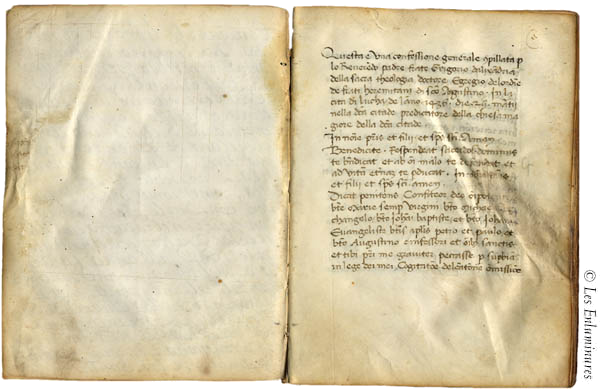 Questa e una confessione generale cpillata p
lo Reverēdo padre frate Grigorio dalixādria
della sacra theologia doctore Egregio delordine
de frati heremitani di sco Augustino · In la
cita di lucha de lano
nella dca citade predicatore della chiesa ma
giore della dca citade
In noīe pris et filii et sps sci Amen
Benedicite · Respondeat sacerdos dominus
te bndicat et ab oi malo te defendat et
ad vitā eternaz te pducat · In noīe pris
et filii et sps sci amen
Dicat penitens Confiteor deo oipotenti
bte Marie semp virgini bto michaeli
changelo bto Johāi baptiste et bto Johāi
Evangelista btis aplis petro et paulo et
bto Augustino confessori et oibs sanctis
et tibi pri me graviter peccasse p supbia
in lege dei mei Cogitatōe delectatōe omissiōe
© Les Enluminures